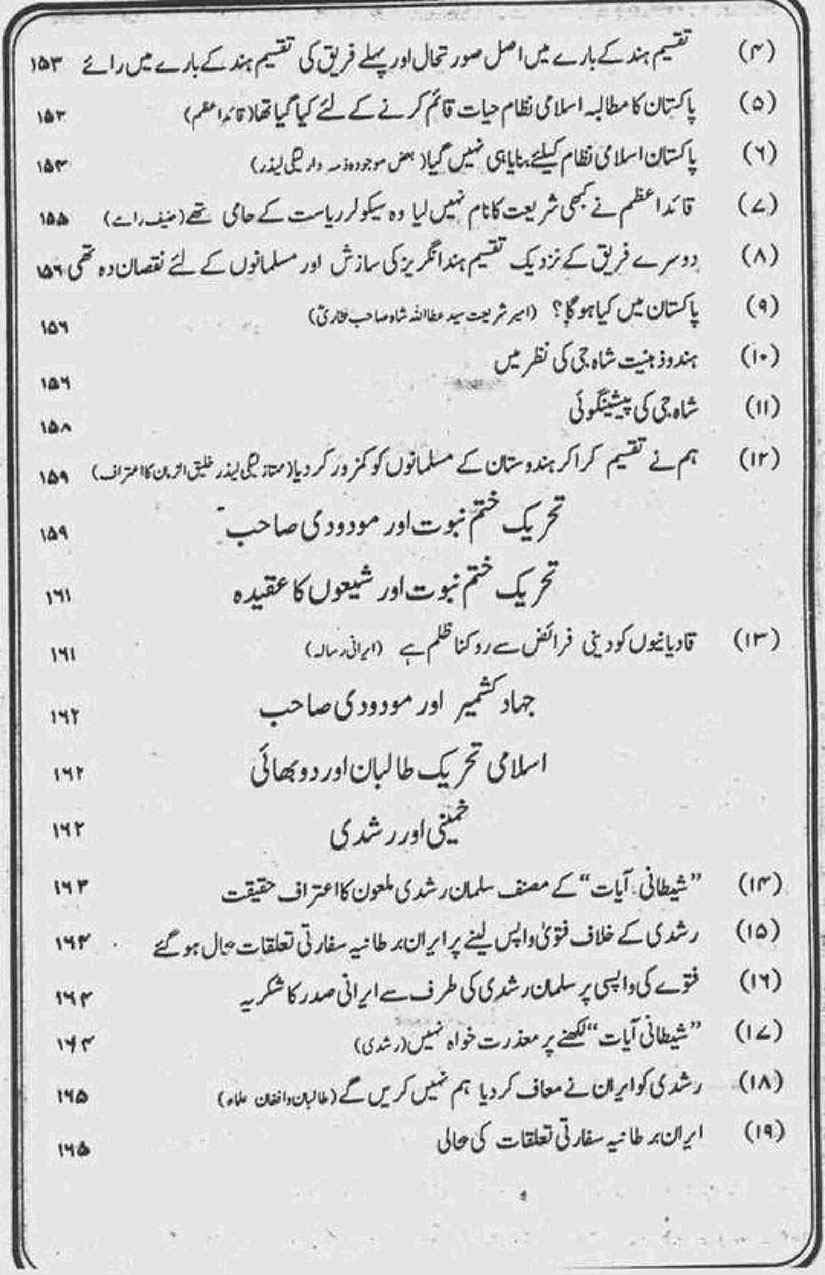 (۴) تقسیم ہند کے بارے میں اصل صورتحال اور پہلے فریق کی تقسیم ہند کے بارے میں رائے ۱۵۳
(۵) پاکستان کا مطالبہ اسلامی نظام حیات قائم کرنے کے لئے کیا گیا تھا (قائداعظم) ۱۵۳
(۶) پاکستان اسلامی نظام کیلئے بنایا ہی نہیں گیا (بعض موجودہ ذمہ دار لیگی لیڈر) ۱۵۴
(۷) قائداعظم نے کبھی شریعت کا نام نہیں لیا وہ سیکولر ریاست کے حامی تھے (حنیف رامے) ۱۵۵
(۸) دوسرے فریق کے نزدیک تقسیم ہند انگریز کی سازش اور مسلمانوں کے لئے نقصان دہ تھی ۱۵۶
(۹) پاکستان میں کیا ہوگا؟ (امیر شریعت سید عطااللہ شاہ صاحب بخاریؒ) ۱۵۶
(۱۰) ہندو ذہنیت شاہ جی کی نظر میں ۱۵۶
(۱۱) شاہ جی کی پیشینگوئی ۱۵۸
(۱۲) ہم نے تقسیم کرا کر ہندوستان کے مسلمانوں کو کمزور کر دیا (ممتاز لیگی لیڈر خلیق الزمان کا اعتراف) ۱۵۹
تحریک ختم نبوت اور مودودی صاحب ۱۵۹
تحریک ختم نبوت اور شیعوں کا عقیدہ ۱۶۱
(۱۳) قادیانیوں کو دینی فرائض سے روکنا ظلم ہے (ایرانی رسالہ) ۱۶۱
جہاد کشمیر اور مودودی صاحب ۱۶۲
اسلامی تحریک طالبان اور دو بھائی ۱۶۲
خمینی اور رشدی ۱۶۲
(۱۴) "شیطانی آیات" کے مصنف سلمان رشدی ملعون کا اعتراف حقیقت ۱۶۳
(۱۵) رشدی کے خلاف فتویٰ واپس لینے پر ایران برطانیہ سفارتی تعلقات بحال ہو گئے ۱۶۴
(۱۶) فتوے کی واپسی پر سلمان رشدی کی طرف سے ایرانی صدر کا شکریہ ۱۶۴
(۱۷) "شیطانی آیات" لکھنے پر معذرت خواہ نہیں (رشدی) ۱۶۴
(۱۸) رشدی کو ایران نے معاف کر دیا ہم نہیں کریں گے (طالبان و افغان علماء) ۱۶۵
(۱۹) ایران برطانیہ سفارتی تعلقات کی بحالی ۱۶۵